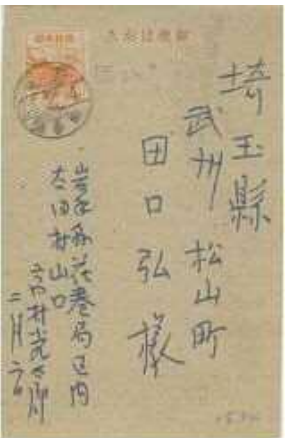 郵便はがき
埼玉縣
武州松山町
田口弘様
岩手縣花巻局区内
太田村山口
高村光太郎
二月六日